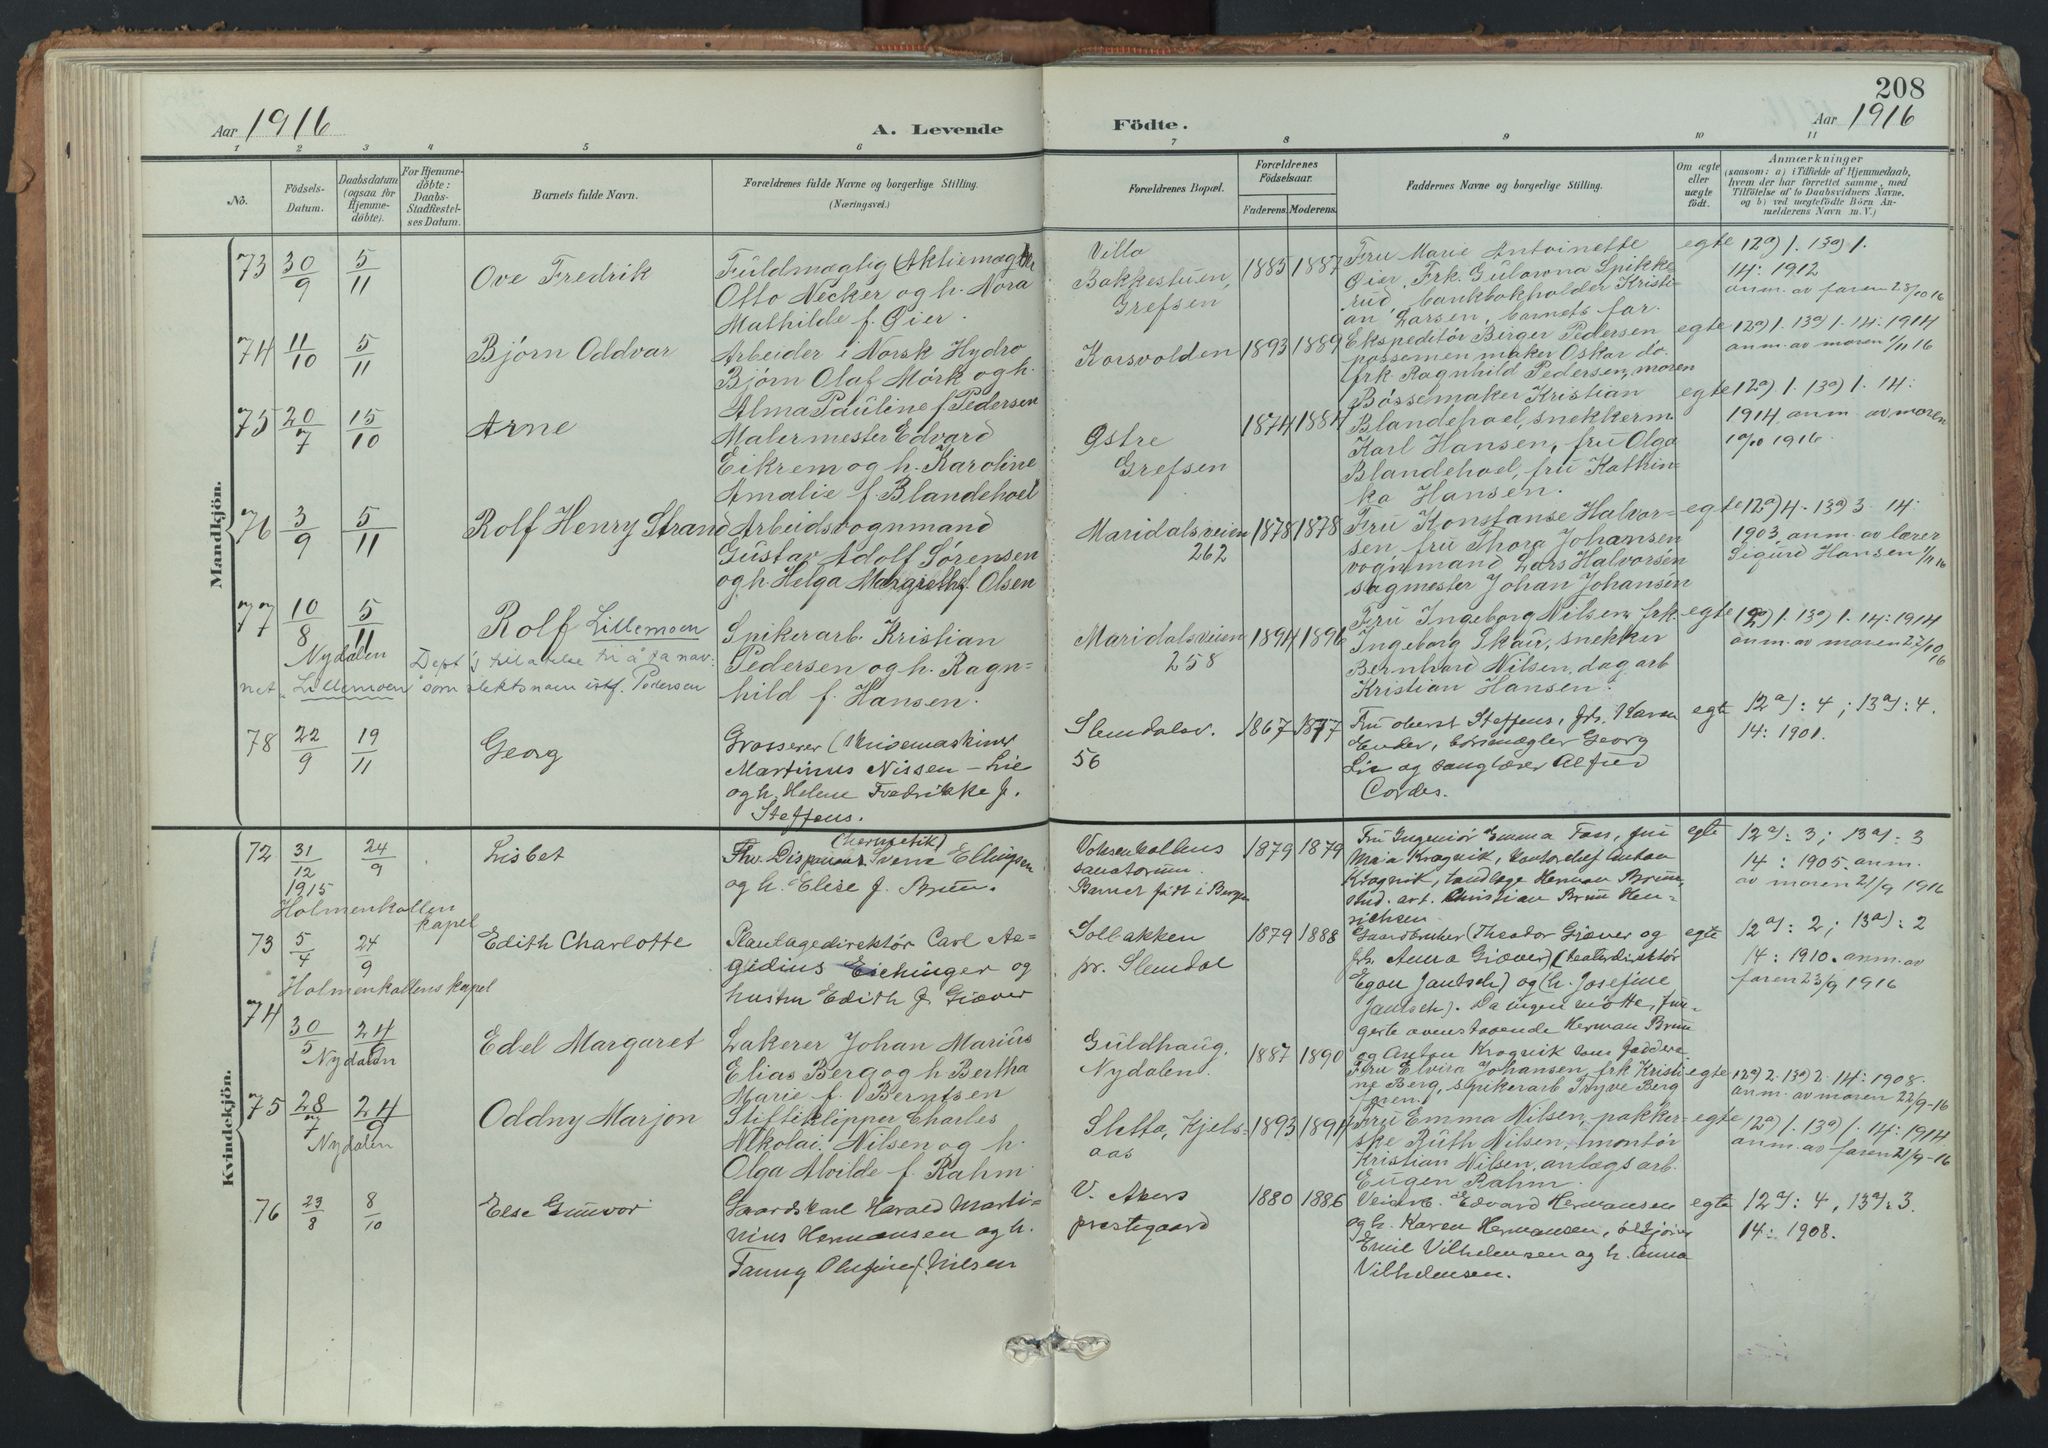 208
Aar 1916
A. Levende
Födte.
Aar 1916
1 2 3 4 5 6 7 8 9 10 11
No.
Födsels-
Datum.
Daabsdatum
(ogsaa for
Hjemme-
döbte).
For Hjemme-
döbte:
Daabs-
Stadfestel-
ses Datum.
Barnets fulde Navn.
Forældrenes fulde Navne og borgerlige Stilling.
(Næringsvei.)
Forældrenes Bopæl.
Forældrenes
Födselsaar.
Faderens. Moderens.
Faddernes Navne og borgerlige Stilling.
Om ægte
eller
uægte
födt.
Anmærkninger
(saasom: a) i Tilfælde af Hjemmedaab,
hvem der har forrettet samme, med
Tilföielse af to Daabsvidners Navne.
og b) ved uægtefödte Börn An-
melderens Navn m. V.)
Mandkjön.
73 30/9 5/11 Ove Fredrik
Fuldmægtig (Aktiemægler
Otto Necker og h. Nora
Mathilde f. Øier.
Villa
Bakkestuen,
Grefsen
1885 1887
Fru Marie Antoinette
Øier, Frk. Gulowna Spikke-
rud, bankbokholder Kristi-
an Larsen, barnets far.
egte 12a) 1. 13a) 1.
14: 1912
anm. av faren 28/10 16
74 11/10 5/11 Bjørn Oddvar
Arbeider i Norsk Hydro
Bjørn Olaf Mørk og h.
Alma Pauline f. Pedersen
Korsvolden 1893 1889
Ekspeditør Birger Pedersen
possemenmaker Oskar do.
frk. Ragnhild Pedersen, moren
egte 12a) 1. 13a) 1. 14: 1914
anm. av moren 1/11 16
75 20/7 15/10 Arne
Malermester Edvard
Eikrem og h. Karoline
Amalie f. Blandehoel
Østre
Grefsen
1874 1884
Bøssemaker Kristian
Blandehoel, snekkerm.
Karl Hansen, fru Olga
Blandehoel, fru Kathin-
ka Hansen.
egte 12a) 1. 13a) 1. 14:
1914, anm. av moren
10/10 1916.
76 3/9 5/11 Rolf Henry Strand
Arbeidsvognmand
Gustav Adolf Sørensen
og h. Helga Margrethe f. Olsen
Maridalsveien
262
1878 1878
Fru Konstanse Halvor-
sen, fru Thora Johansen
vognmand Lars Halvorsen
sagmester Johan Johansen
egte 12a) 4. 13a) 3. 14:
1903, anm. av lærer
Sigurd Hansen 1/11 16
77 10/8 5/11 Rolf Lillemoen
Nydalen
Dept's tilatelse til å ta nav-
net "Lillemoen" som slektsnavn istf. Pedersen
Spikerarb. Kristian
Pedersen og h. Ragn-
hild f. Hansen.
Maridalsveien
258
1894 1896
Fru Ingeborg Nilsen, frk.
Ingeborg Skau, snekker
Bernhard Nilsen, dagarb.
Kristian Hansen.
egte 12a) 1. 13a) 1. 14: 1914
anm. av moren 27/10 16
78 22/9 19/11 Georg
Grosserer
Martinus Nissen-Lie
og h. Helene Fredrikke f.
Steffens.
Slemdalsv.
56
1867 1877
Fru oberst Steffens, frk. Karen
børsmægler Georg
Lie og sanglærer Alfred
Cordes.
egte 12a): 4; 13a): 4.
14: 1901.
Kvindekjön.
72 31/12 1915 24/9 Lisbet
Holmenkollen
kapel
(hermetik)
Disponent Svenn Ellingsen
og h. Elise f. Bruun.
Voksenkollens
sanatorium.
Barnet født i Bergen
1879 1879
Fru Ingeniør Emma Foss, fru
Maia Krogvik, kontorchef Anton
Krogvik, tandlæge Herman Bruun,
stud. art. Christian Bruun Hen-
richsen
egte 12a): 3; 13a): 3
14: 1905. anm.
av moren 21/9 1916
73 5/4 24/9 Edith Charlotte
Holmenkollens kapel
Plantagedirektør Carl Ae-
gidius Eichinger og
hustru Edith f. Giæver
Solbakken
pr. Slemdal
1879 1888
Gaardbruker (Theodor Giæver og
frk. Anna Giæver) (teaterdirektør
Egon Jantsch) og (h. Josefine
Jantsch). Da ingen møtte, fun-
gerte ovenstaaende Herman Bruun
og Anton Krogvik som faddere.
egte 12a): 2; 13a): 2
14: 1910. anm. av
faren 23/9 1916
74 30/5 24/9 Edel Margaret
Nydalen
Lakerer Johan Marius
Elias Berg og h. Bertha
Marie f. Berntsen
Guldhaug,
Nydalen.
1887 1890
Fru Elvira Johansen, frk. Kristi-
ne Berg, spikerarb. Tryve Berg
faren.
egte 12a) 2. 13a) 2. 14: 1908.
anm. av moren 22/9-16
75 28/7 24/9 Oddny Marjon
Nydalen
Stifteklipper Charles
Nikolai Nilsen og h.
Olga Alvilde f. Rahm.
Sletta, Kjels-
aas
1893 1894
Fru Emma Nilsen, pakker-
ske Ruth Nilsen, montør
Kristian Nilsen, anlægsarb.
Eugen Rahm.
egte 12a) 1. 13a) 1. 14: 1914.
anm. av faren 21/9-16
76 23/8 8/10 Else Gunvor
Gaardskarl Harald Marti-
nius Hermansen og h.
Fanny Olufine f. Nilsen
V. Akers
prestegaard
1880 1886
Veiarb. Edvard Hermansen
og h. Karen Hermansen,
Emil Vilhelmsen og h. Anna
Vilhelmsen.
egte 12a): 4, 13a): 3.
14: 1908.